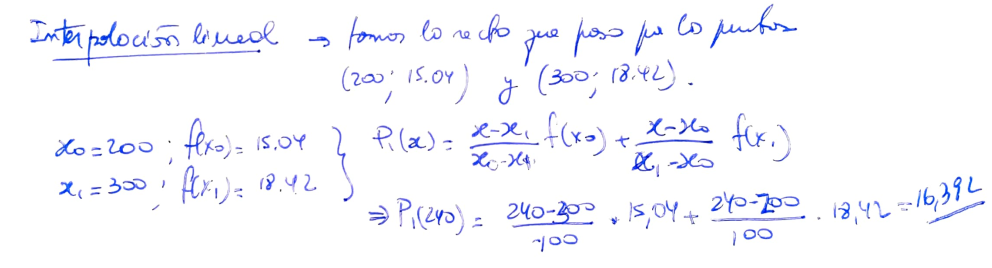 Interpolación lineal → tomos lo recto que paso por lo puntos
(200; 15.04) y (300; 18.42).
x₀ = 200 ; f(x₀) = 15.04
x₁ = 300 ; f(x₁) = 18.42
} P₁(x) = \frac{x-x₁}{x₀-x₁} f(x₀) + \frac{x-x₀}{x₁-x₀} f(x₁)
⇒ P₁(240) = \frac{240-300}{-100} · 15,04 + \frac{240-200}{100} · 18,42 = 16,392